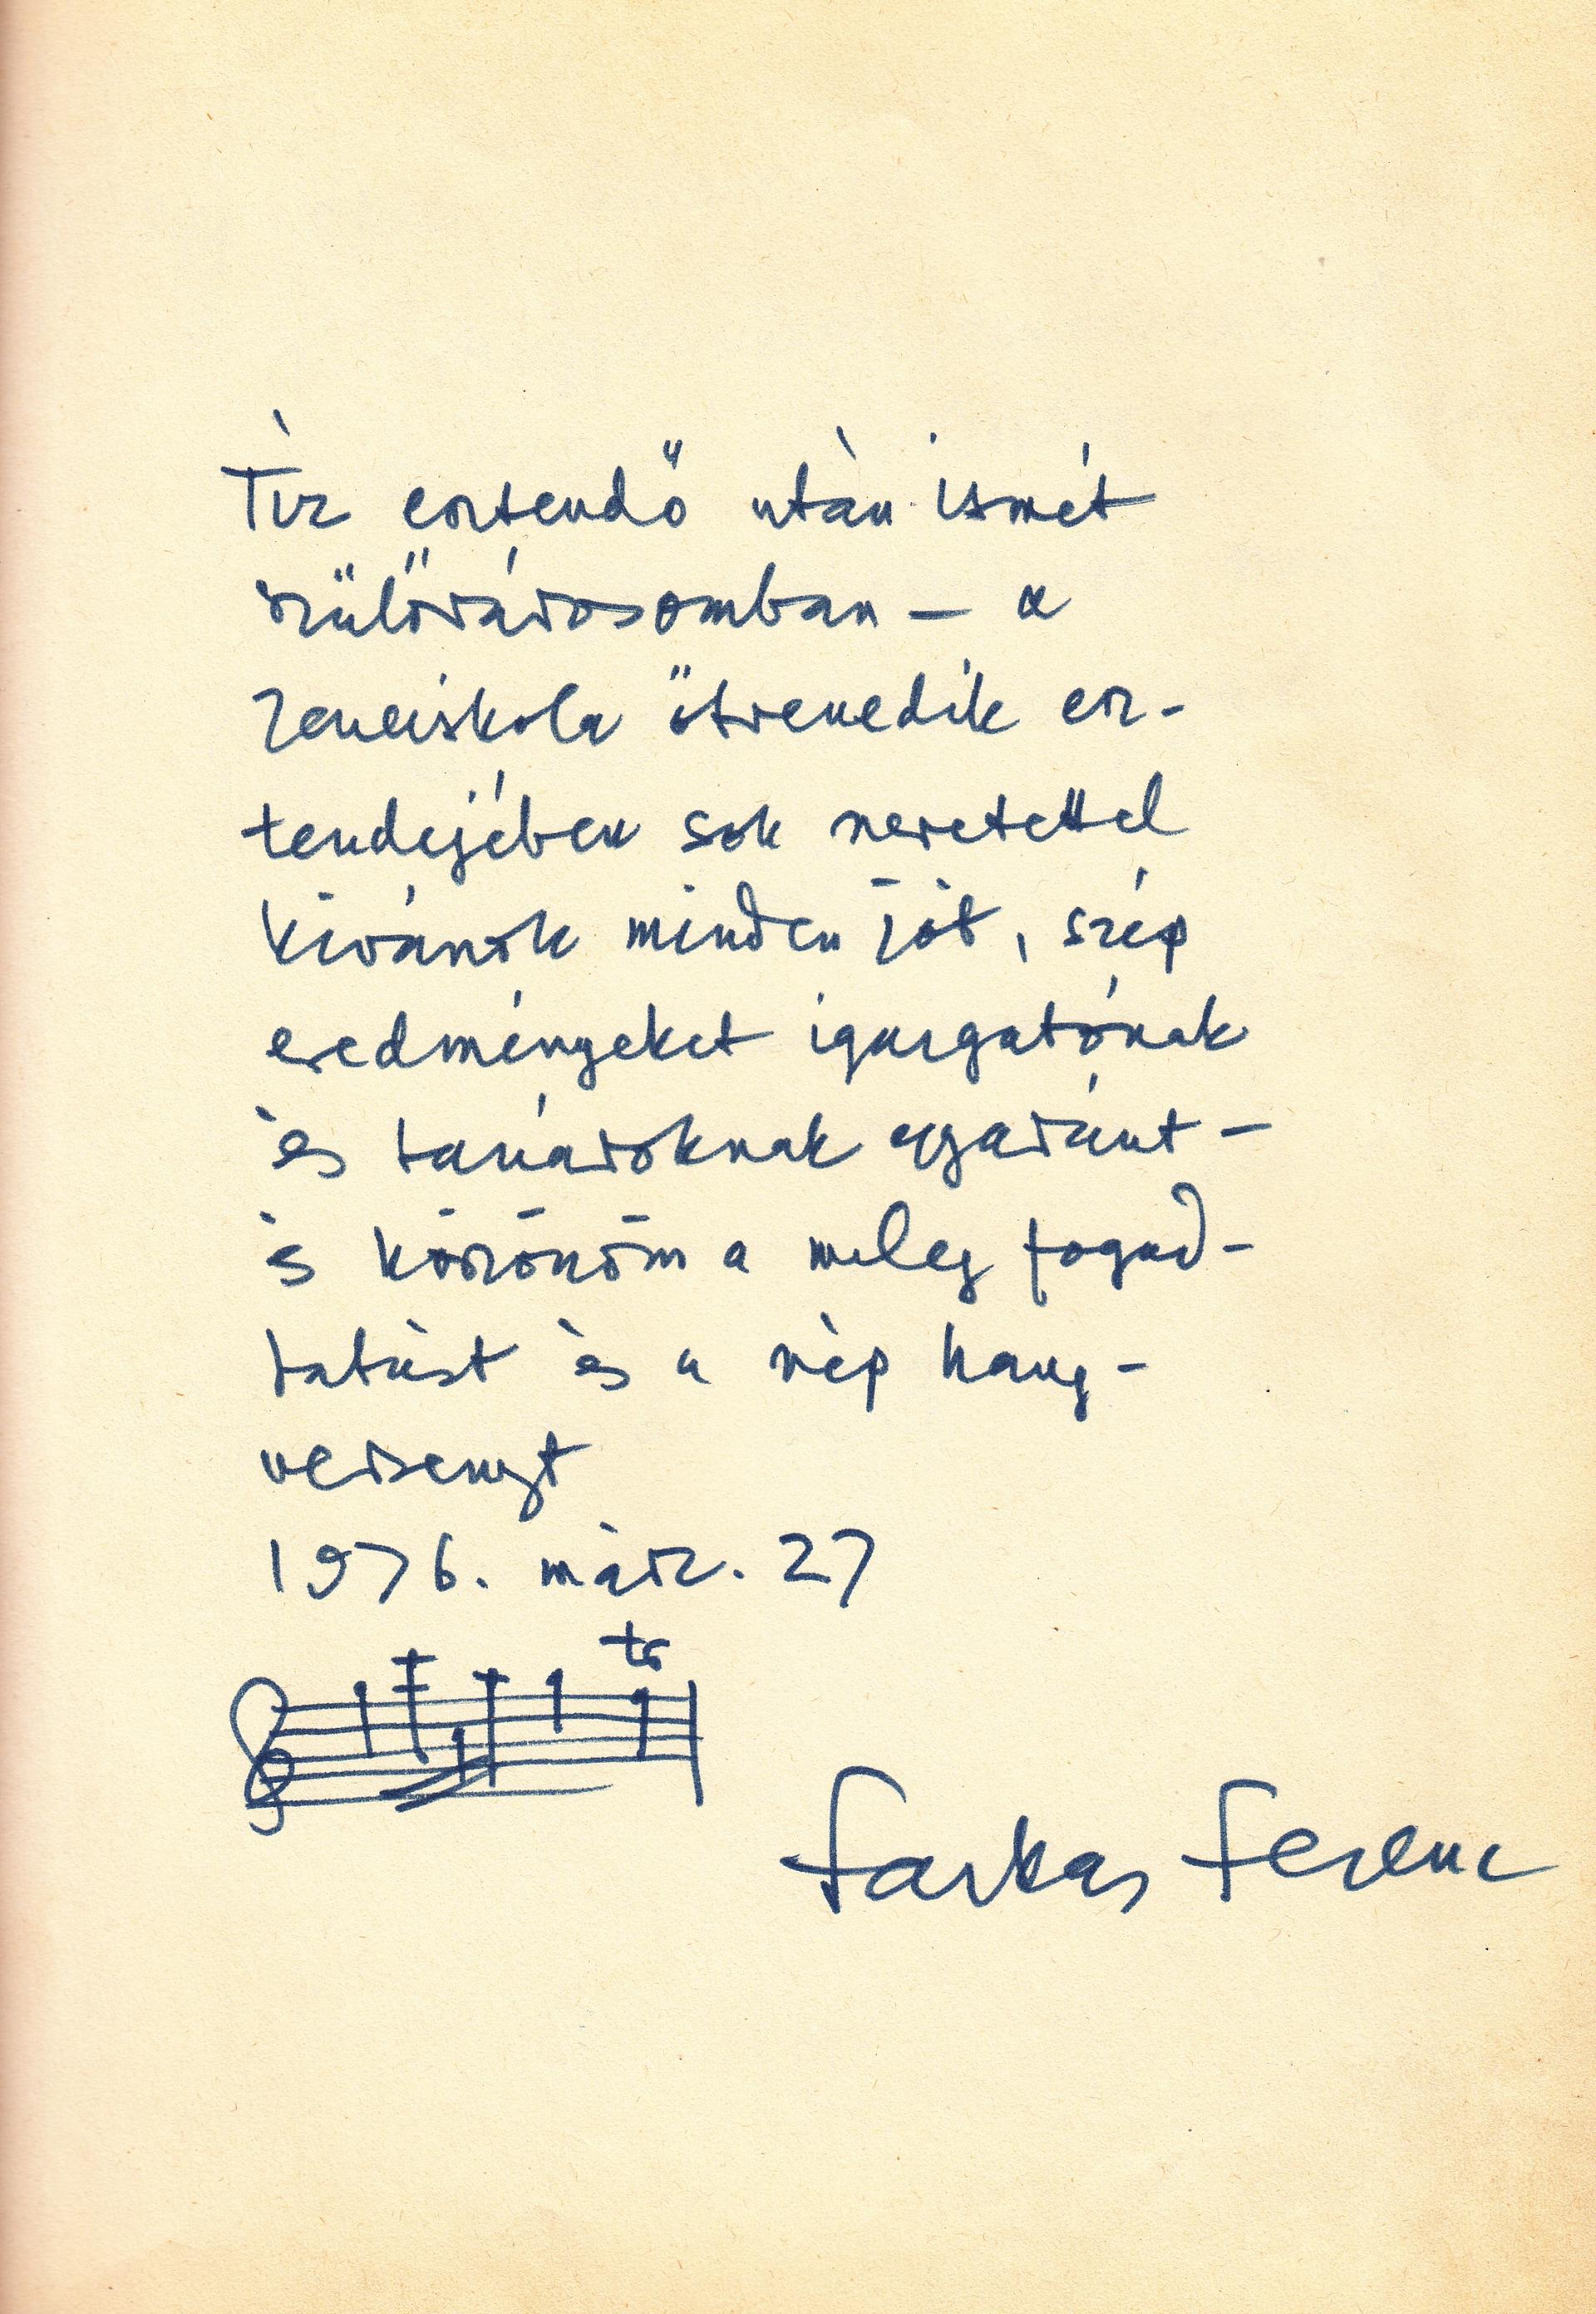 Tíz esztendő után ismét
szülővárosomban – a
zeneiskola ötvenedik esz-
tendejében sok szeretettel
kívánok minden jót, szép
eredményeket igazgatónak
és tanároknak egyaránt –
és köszönöm a meleg fogad-
tatást és a szép hang-
versenyt
1976. márc. 27
tr
Farkas Ferenc